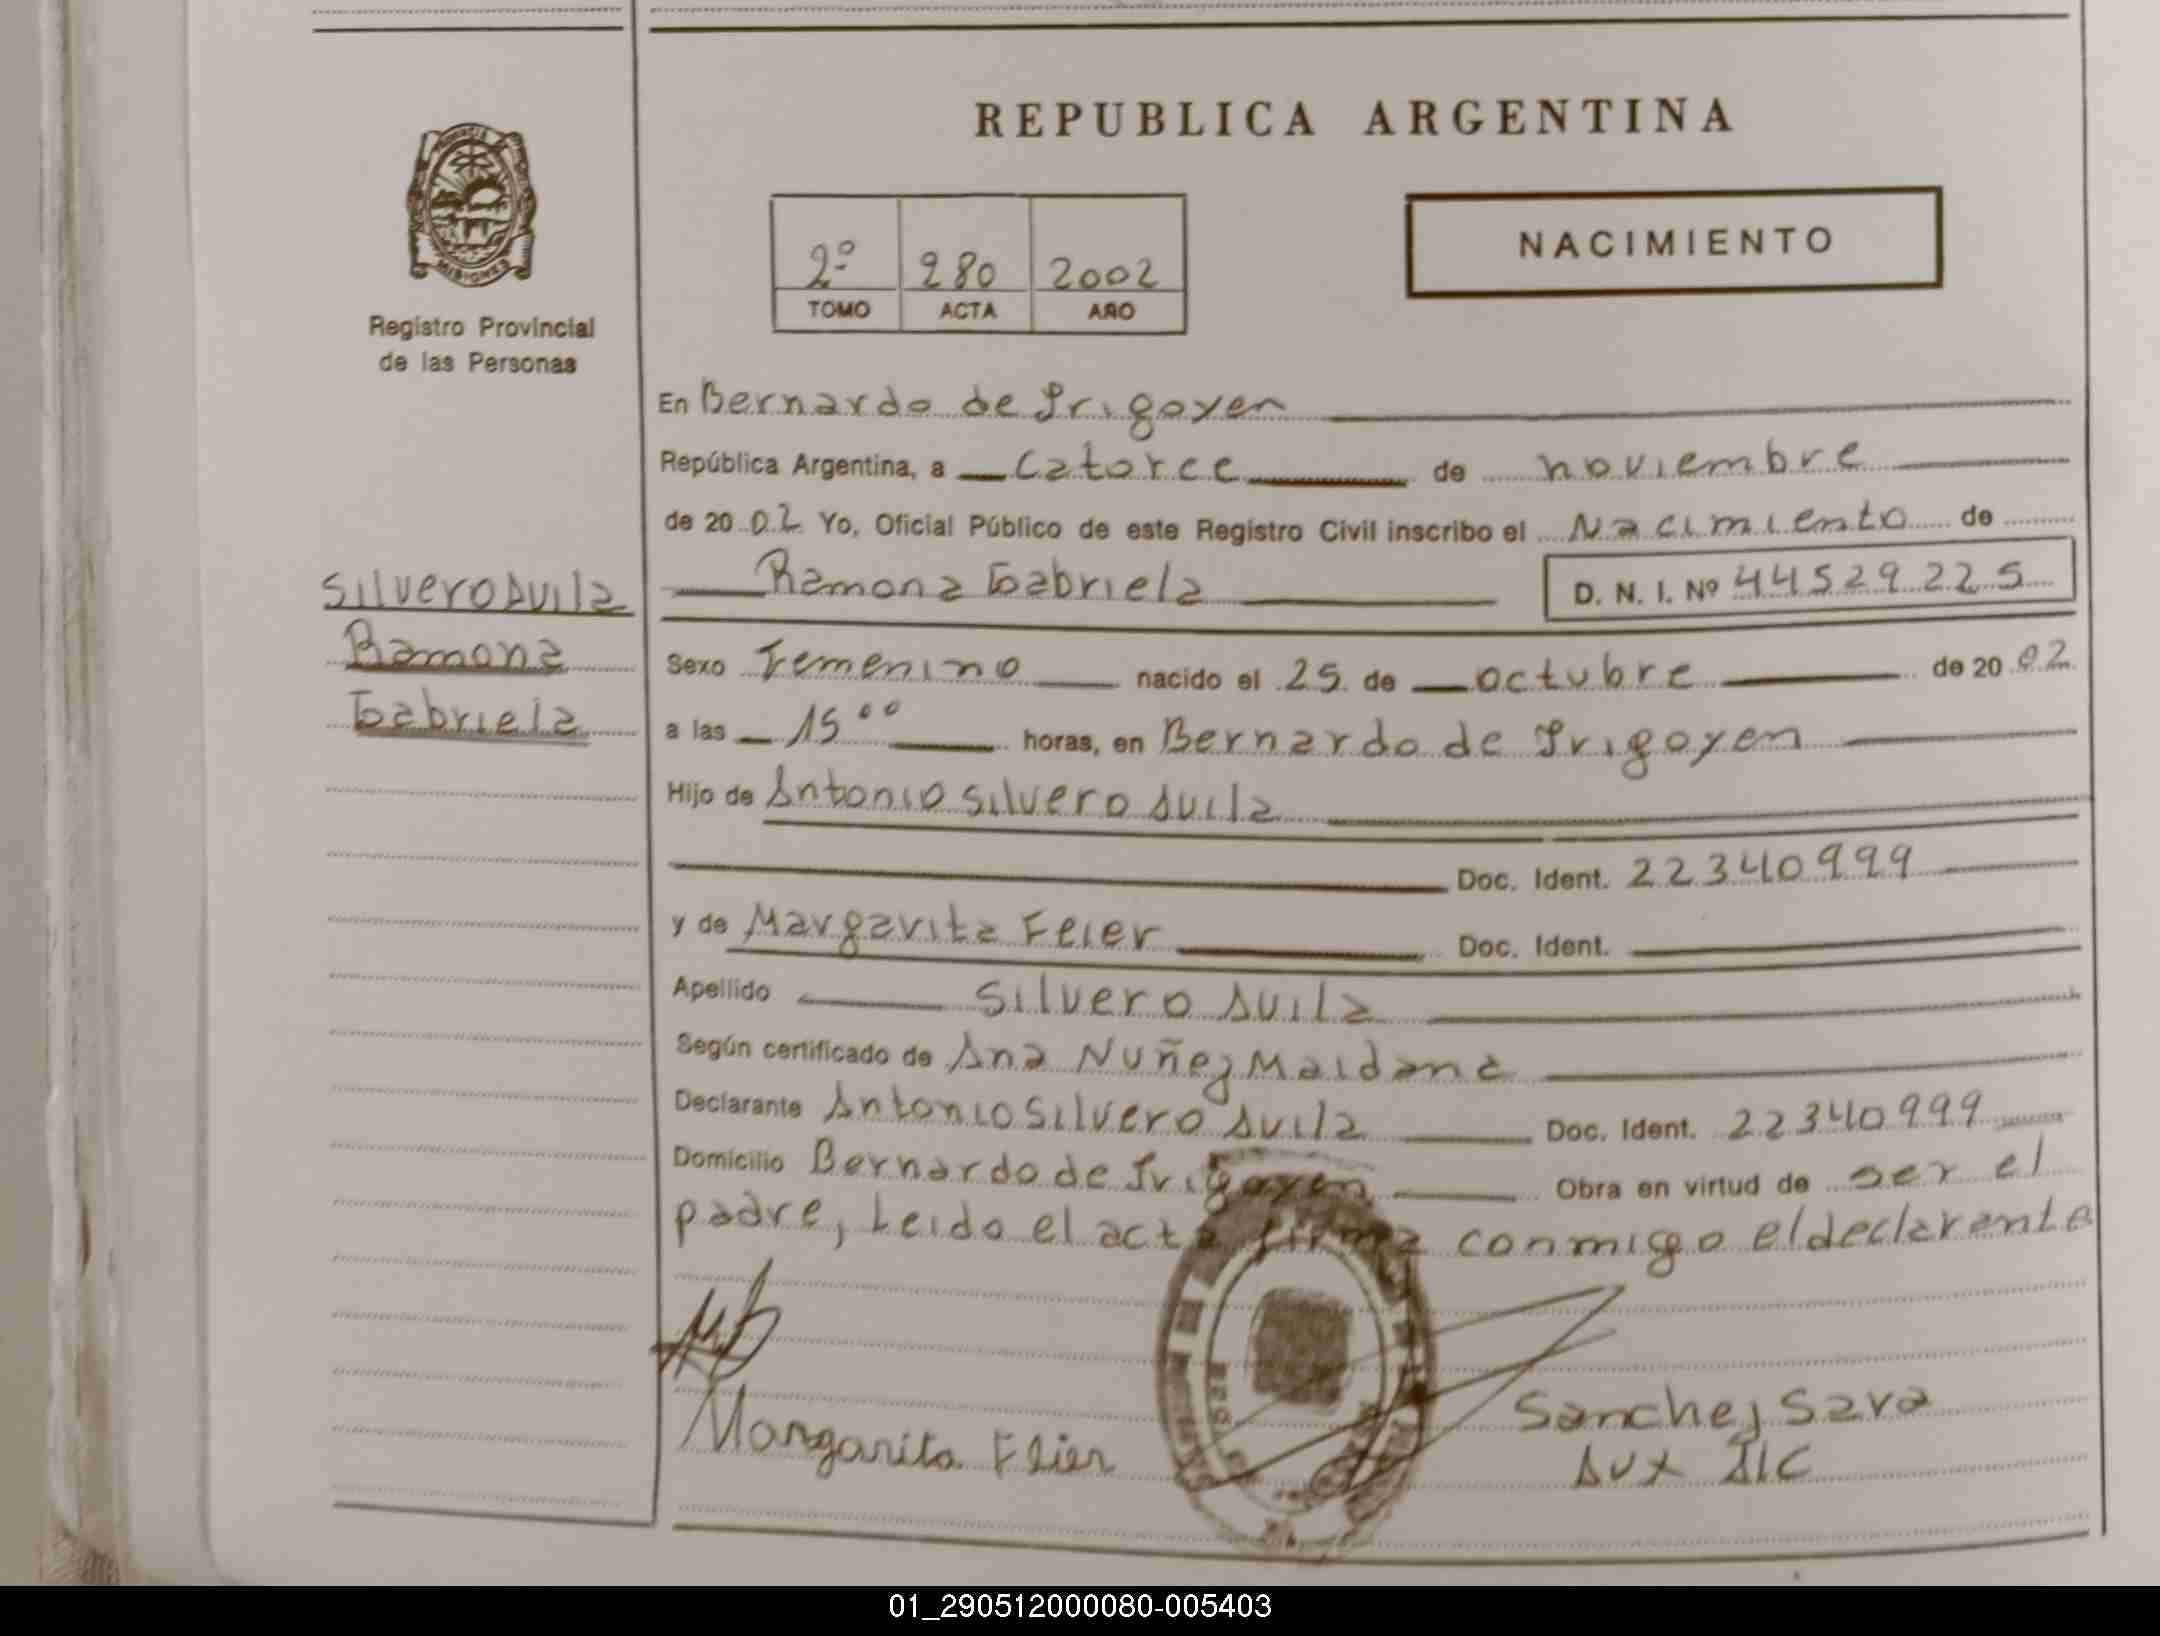 REPUBLICA ARGENTINA
MISIONES
Registro Provincial
de las Personas
2º 280 2002
TOMO ACTA AÑO
NACIMIENTO
En Bernardo de Irigoyen
República Argentina, a Catorce de noviembre
de 2002 Yo, Oficial Público de este Registro Civil inscribo el Nacimiento de
Ramona Gabriela D. N. I. Nº 44529225
Silvero Avila
Ramona
Gabriela
Sexo Femenino nacido el 25 de octubre de 2002
a las 15 00 horas, en Bernardo de Irigoyen
Hijo de Antonio Silvero Avila
Doc. Ident. 22340999
y de Margarita Feier Doc. Ident.
Apellido Silvero Avila
Según certificado de Ana Nuñez Maidana
Declarante Antonio Silvero Avila Doc. Ident. 22340999
Domicilio Bernardo de Irigoyen Obra en virtud de ser el
padre, Leido el acta firma conmigo el declarante
Margarita Feier
Sanchez Sara
Aux
01_290512000080-005403